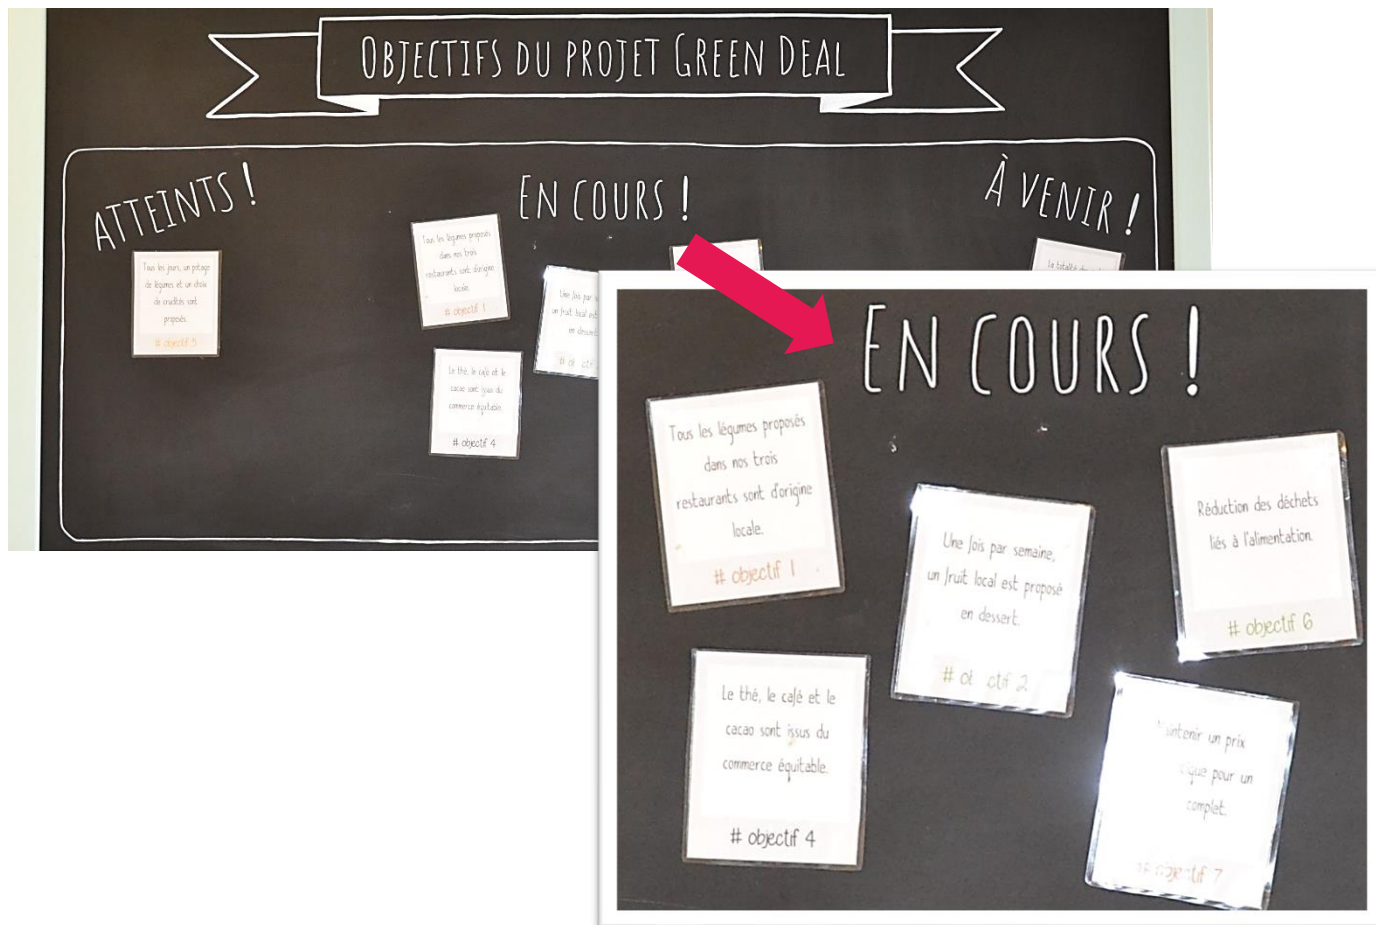 OBJECTIFS DU PROJET GREEN DEAL
ATTEINTS !
EN COURS !
À VENIR !
Tous les jours, un potage
de légumes et un choix
de crudités sont
proposés.
# objectif 3
Tous les légumes proposés
dans nos trois
restaurants sont d'origine
locale.
# objectif 1
Une fois par
un fruit local est
en dessert.
Le thé, le café et le
cacao sont issus du
commerce équitable.
# objectif 4
La totalité
EN COURS !
Tous les légumes proposés
dans nos trois
restaurants sont d'origine
locale.
# objectif 1
Une fois par semaine,
un fruit local est proposé
en dessert.
# ob ctif 2
Réduction des déchets
liés à l'alimentation.
# objectif 6
Le thé, le café et le
cacao sont issus du
commerce équitable.
# objectif 4
un prix
pour un
complet.
# objectif 7